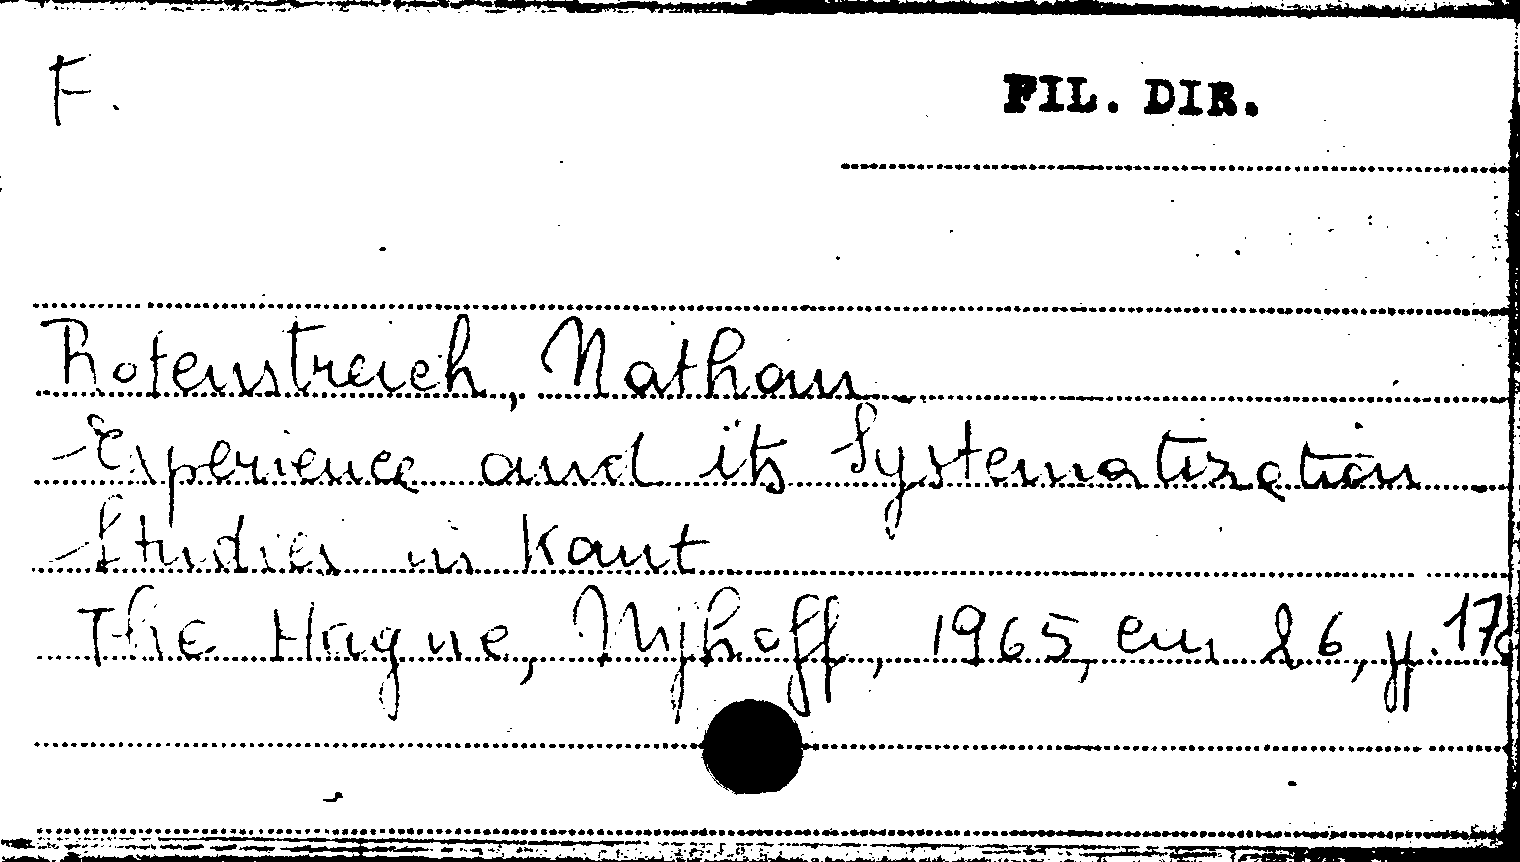 F.
FIL. DIR.
Rotenstreich, Nathan
Experience and its Systematization
Studies in Kant
The Hague, Nijhoff, 1965, cm 26, pp. 178